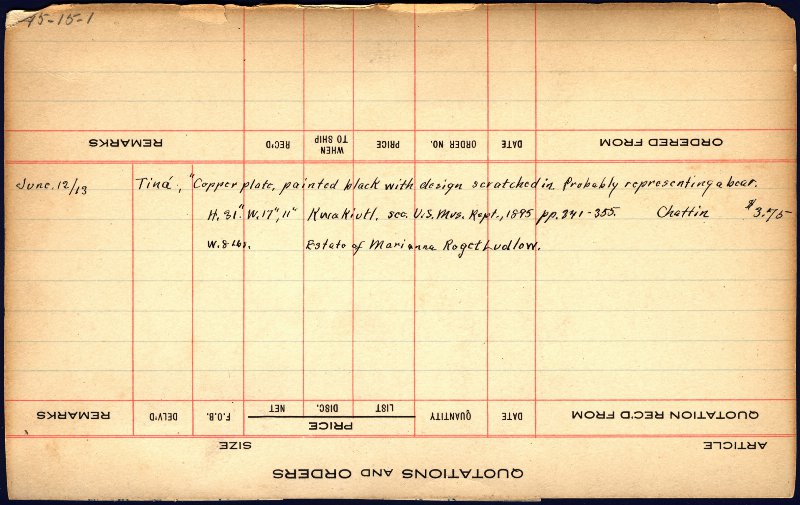 45-15-1
REMARKS REC'D WHEN TO SHIP PRICE ORDER NO. DATE ORDERED FROM
June. 12/13 Tiná., "Copper plate, painted black with design scratched in. Probably representing a bear.
H. 31". W. 17", 11" Kwakiutl, see. U.S. Mus. Rept., 1895 pp. 341-355. Chattin $3.75
Estate of Marianna Roget Ludlow.
REMARKS DELV'D F.O.B. NET DISC. LIST QUANTITY DATE QUOTATION REC'D FROM
PRICE
SIZE ARTICLE
QUOTATIONS AND ORDERS